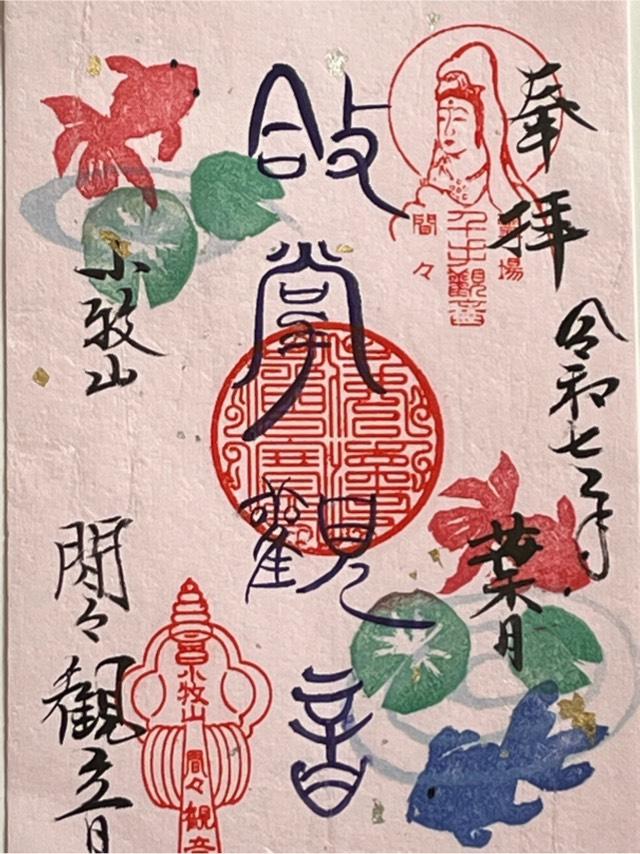 奉拝
令和七年
葉月
場
千手觀音
間々
敆掌觀音
小牧山
間々観音
小牧山
間々観音